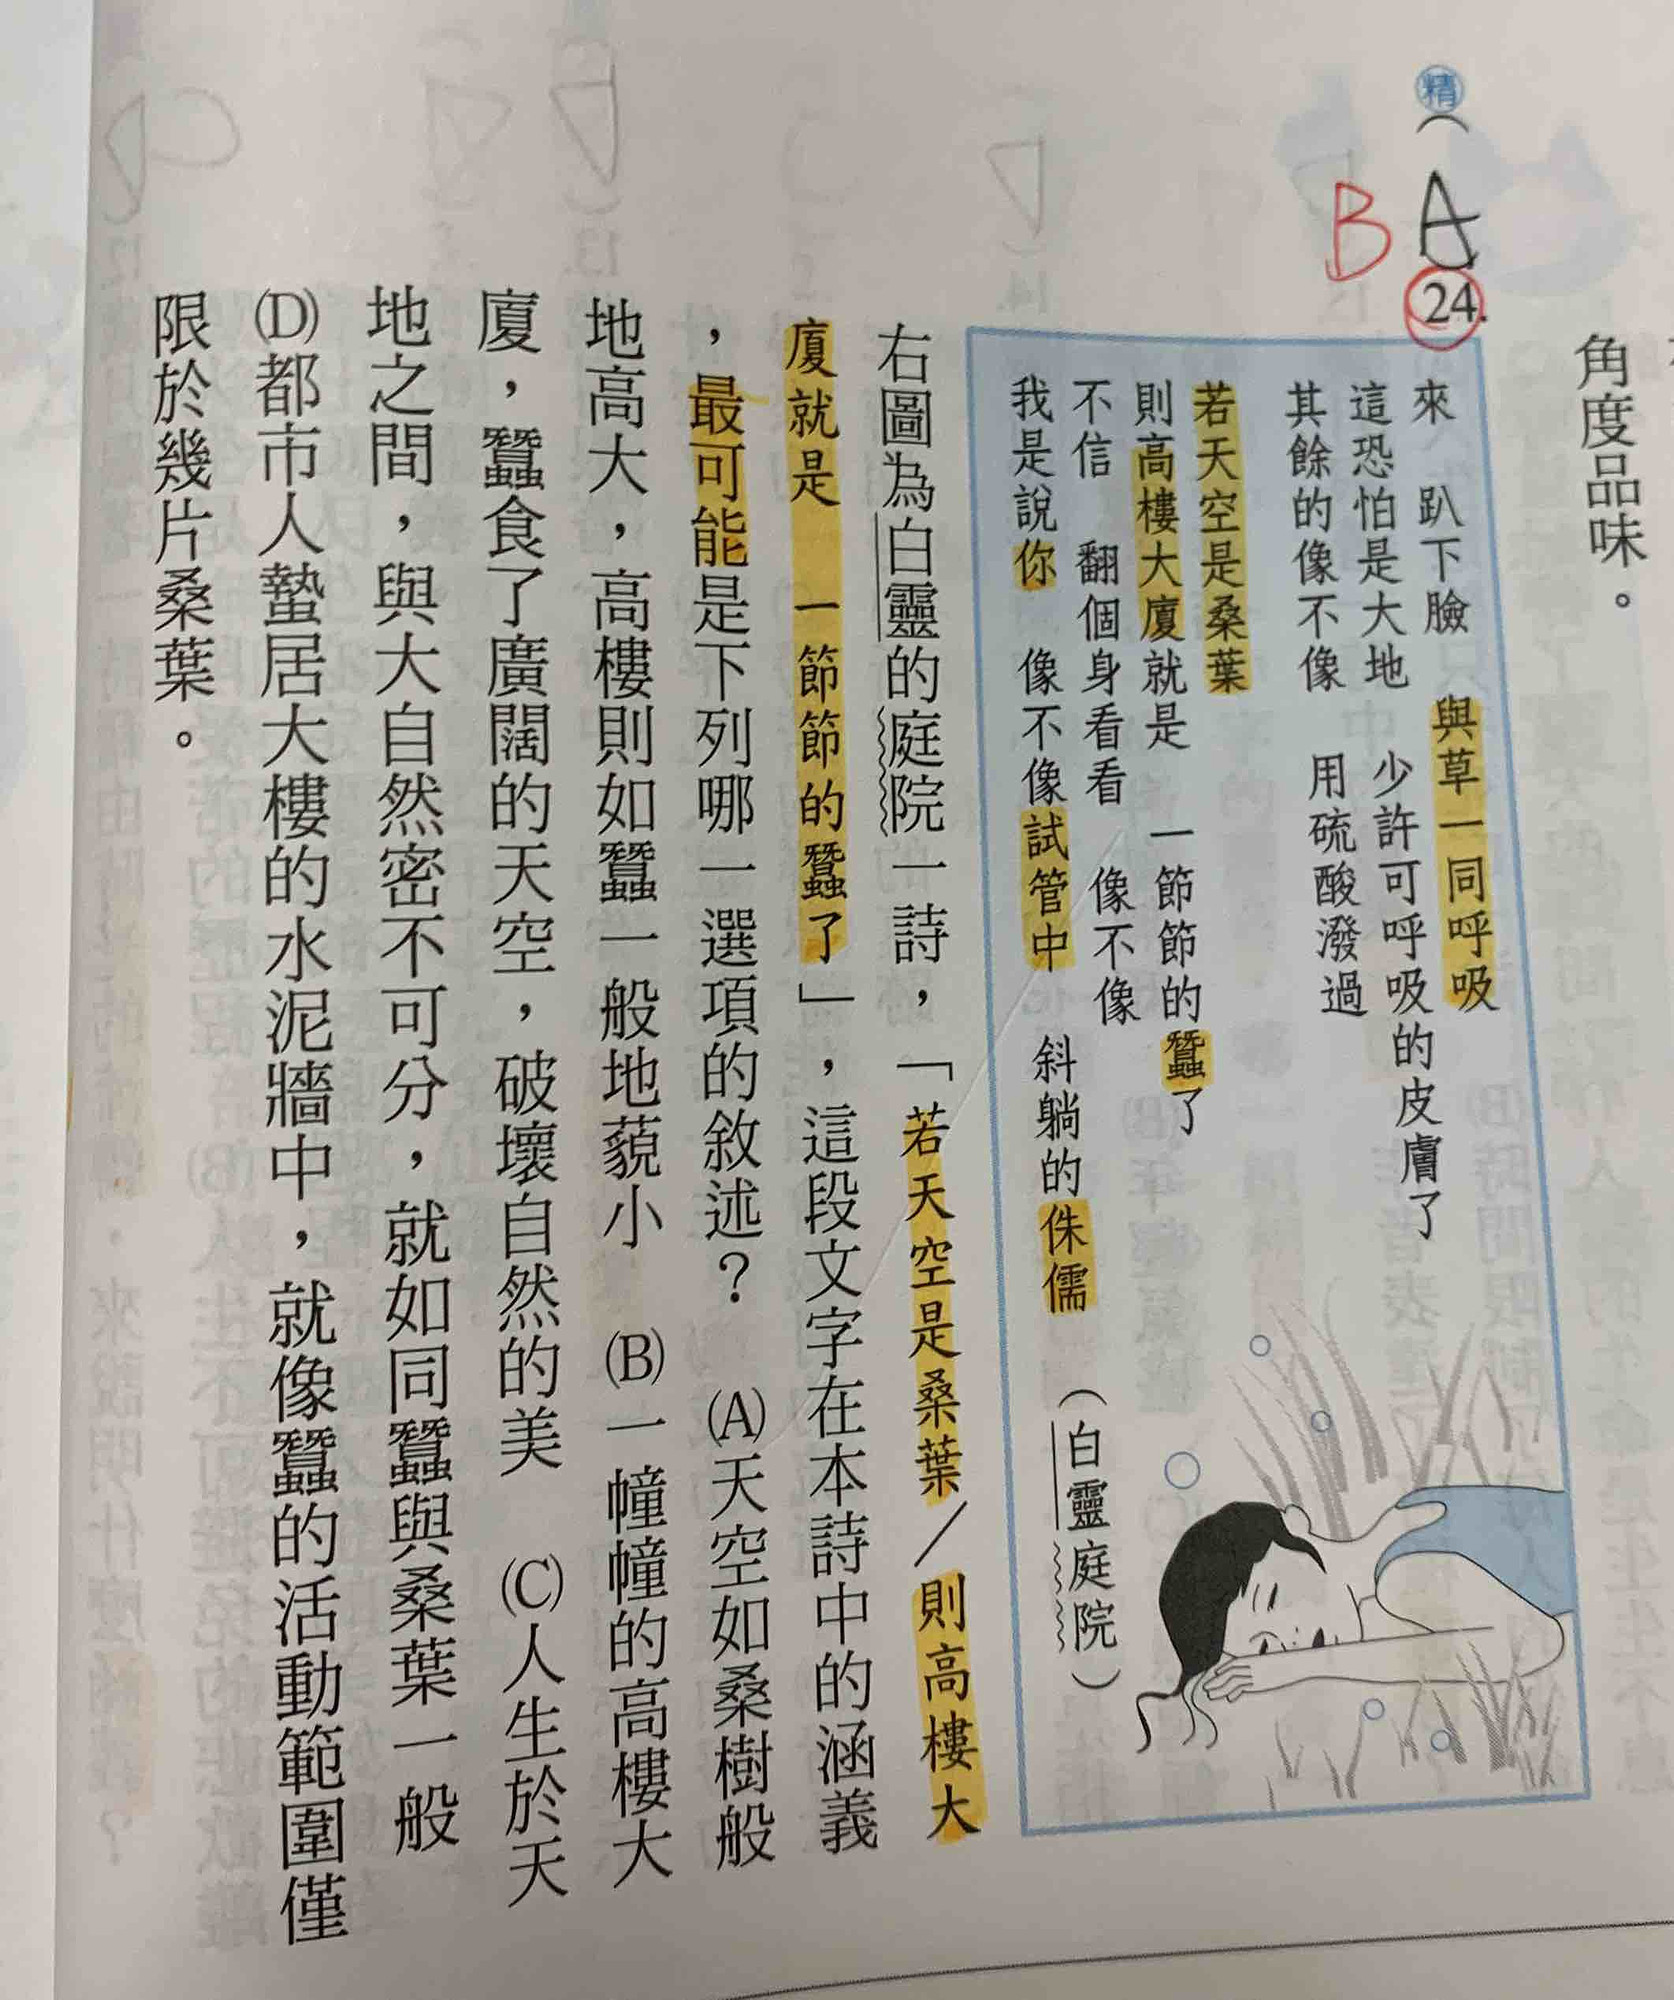 角度品味。
精（A）24.
B
來　趴下臉　與草一同呼吸
這恐怕是大地　少許可呼吸的皮膚了
其餘的像不像　用硫酸潑過
若天空是桑葉
則高樓大廈就是　一節節的蠶了
不信　翻個身看看　像不像
我是說你　像不像試管中　斜躺的侏儒
（白靈庭院）
右圖為白靈的庭院一詩，「若天空是桑葉／則高樓大
廈就是　一節節的蠶了」，這段文字在本詩中的涵義
，最可能是下列哪一選項的敘述？　(A)天空如桑樹般
地高大，高樓則如蠶一般地藐小　(B)一幢幢的高樓大
廈，蠶食了廣闊的天空，破壞自然的美　(C)人生於天
地之間，與大自然密不可分，就如同蠶與桑葉一般
(D)都市人蟄居大樓的水泥牆中，就像蠶的活動範圍僅
限於幾片桑葉。